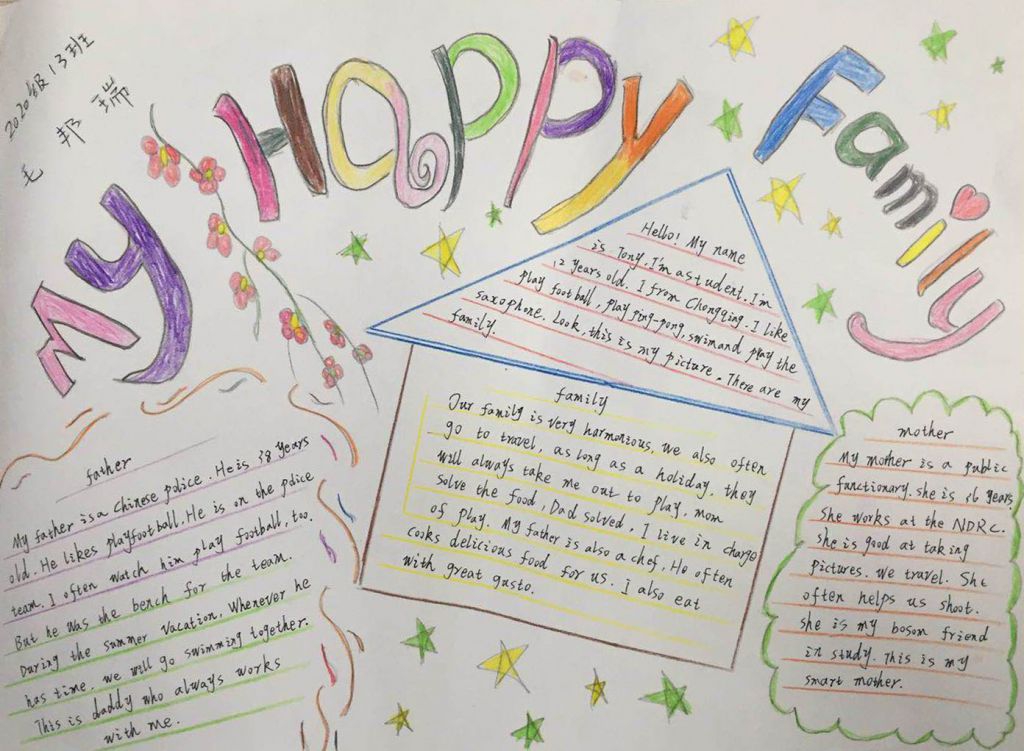 2020级13班
毛邦瑞
My Happy Family
Hello! My name
is Tony. I'm a student. I'm
12 years old. I from Chongqing. I like
play football, play ping-pong, swim and play the
saxophone. Look, this is my picture. There are my
family.
father
My father is a Chinese police. He is 38 years
old. He likes playfootball. He is on the police
team. I often watch him play football, too.
But he was the bench for the team.
During the summer vacation. Whenever he
has time, we will go swimming together.
This is daddy who always works
with me.
family
Our family is very harmonious, we also often
go to travel, as long as a holiday. they
will always take me out to play, mom
solve the food, Dad solved, I live in charge
of play. My father is also a chef, He often
cooks delicious food for us. I also eat
with great gusto.
mother
My mother is a public
functionary. she is 36 years.
She works at the NDRC.
she is good at taking
pictures. we travel. She
often helps us shoot.
she is my bosom friend
in study. This is my
smart mother.